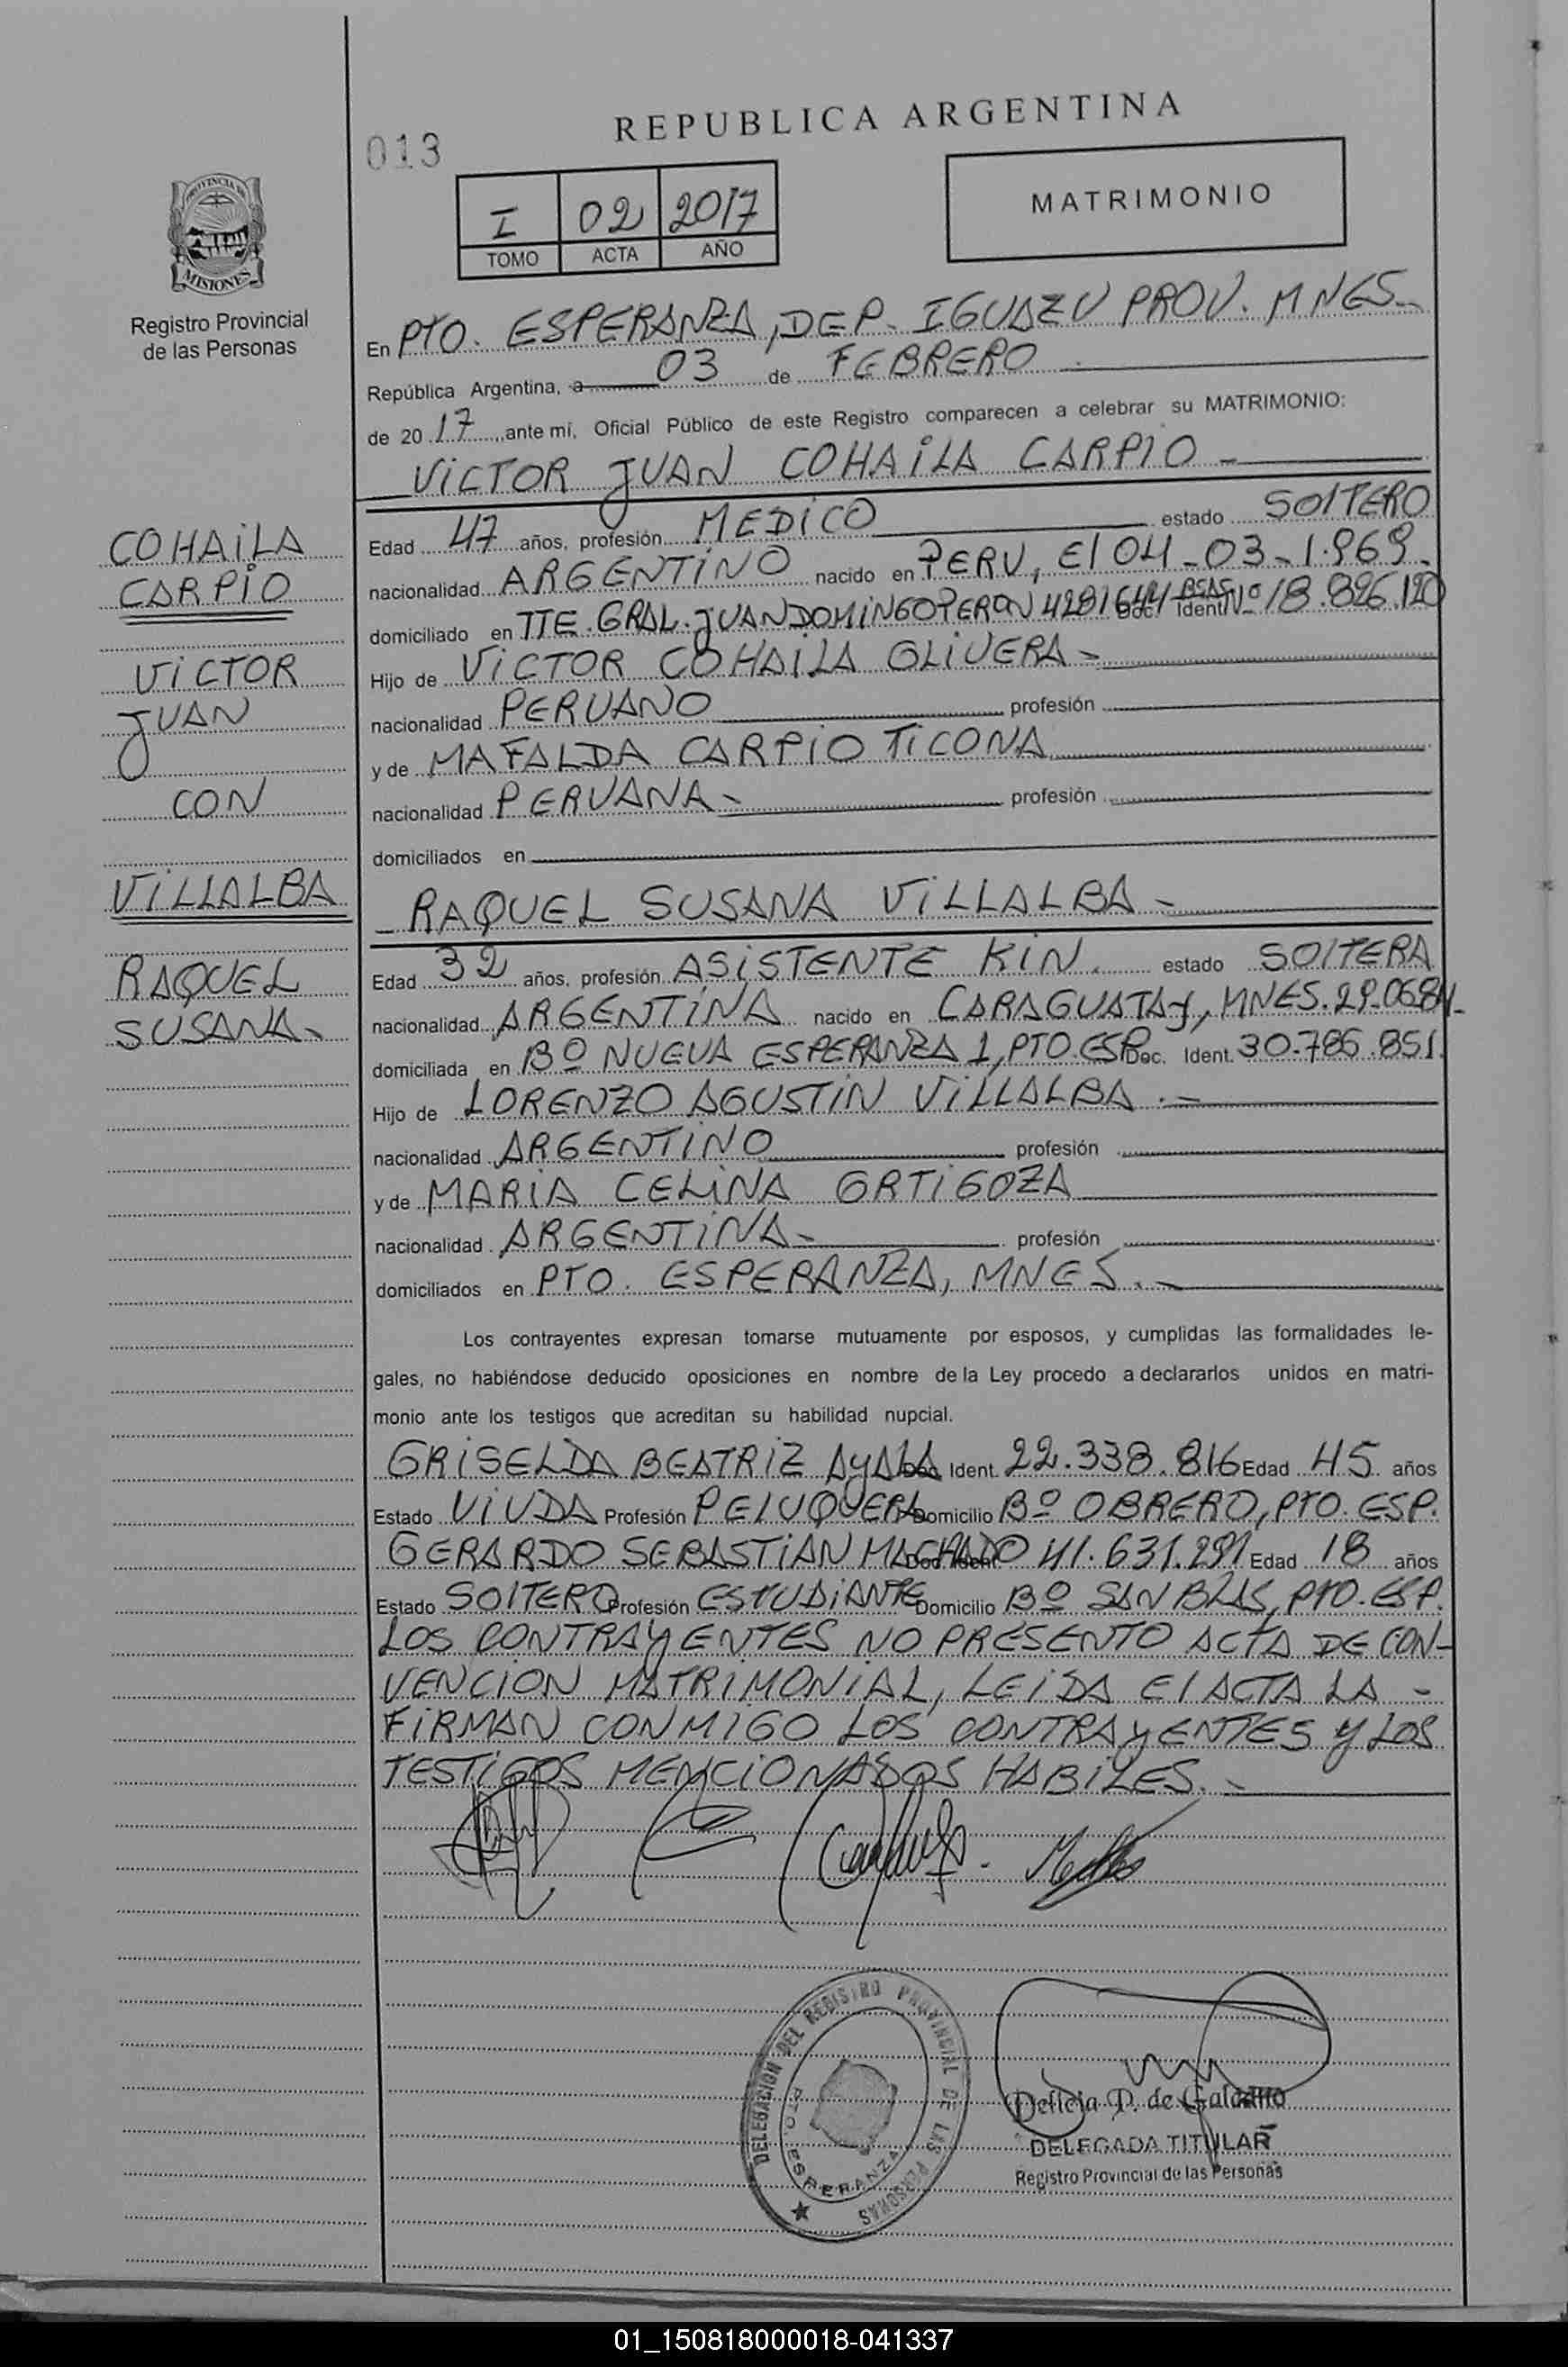 REPUBLICA ARGENTINA
013
I 02 2017
TOMO ACTA AÑO
MATRIMONIO
PROVINCIA DE
MISIONES
Registro Provincial
de las Personas
En PTO. ESPERANZA, DEP. IGUAZU PROV. MNES.
República Argentina, a 03 de FEBRERO
de 20 17 ,ante mí, Oficial Público de este Registro comparecen a celebrar su MATRIMONIO:
VICTOR JUAN COHAILA CARPIO -
COHAILA
CARPIO
VICTOR
JUAN
CON
VILLALBA
RAQUEL
SUSANA-
Edad 47 años, profesión MEDICO estado SOLTERO
nacionalidad ARGENTINO nacido en PERU, El 04-03-1.969-
domiciliado en TTE. GRAL. JUAN DOMINGO PERON 4281 Doc. Ident. Nº 18.826.120
Hijo de VICTOR COHAILA OLIVERA -
nacionalidad PERUANO profesión
y de MAFALDA CARPIO TICONA
nacionalidad PERUANA - profesión
domiciliados en
RAQUEL SUSANA VILLALBA -
Edad 32 años, profesión ASISTENTE KIN. estado SOLTERA
nacionalidad ARGENTINA nacido en CARAGUATAY, MNES. 29-06-84-
domiciliada en Bº NUEVA ESPERANZA 1, PTO. ESP. Doc. Ident. 30.786.851.
Hijo de LORENZO AGUSTIN VILLALBA .-
nacionalidad ARGENTINO profesión
y de MARIA CELINA ORTIGOZA
nacionalidad ARGENTINA - profesión
domiciliados en PTO. ESPERANZA, MNES. -
Los contrayentes expresan tomarse mutuamente por esposos, y cumplidas las formalidades le-
gales, no habiéndose deducido oposiciones en nombre de la Ley procedo a declararlos unidos en matri-
monio ante los testigos que acreditan su habilidad nupcial.
GRISELDA BEATRIZ AYALA Doc. Ident. 22.338.816 Edad 45 años
Estado VIUDA Profesión PELUQUERA Domicilio Bº OBRERO, PTO. ESP.
GERARDO SEBASTIAN MACHADO Doc. Ident. 41.631.291 Edad 18 años
Estado SOLTERO Profesión ESTUDIANTE Domicilio Bº SAN BLAS, PTO. ESP.
LOS CONTRAYENTES NO PRESENTO ACTA DE CON-
VENCION MATRIMONIAL, LEIDA El ACTA LA -
FIRMAN CONMIGO LOS CONTRAYENTES Y LOS
TESTIGOS MENCIONADOS HABILES. -
DELEGACION DEL REGISTRO PROVINCIAL DE LAS PERSONAS
PTO. ESPERANZA
Delicia D. de Galeano
DELEGADA TITULAR
Registro Provincial de las Personas
01_150818000018-041337